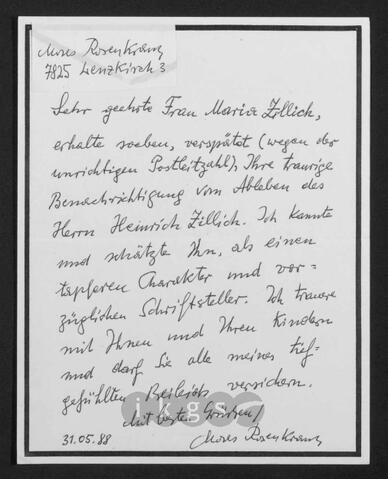 Moses Rosenkranz
7825 Lenzkirch 3
Sehr geehrte Frau Maria Zillich,
erhalte soeben, verspätet (wegen der
unrichtigen Postleitzahl), Ihre traurige
Benachrichtigung vom Ableben des
Herrn Heinrich Zillich. Ich kannte
und schätzte Ihn, als einen
tapferen Charakter und vor=
züglichen Schriftsteller. Ich trauere
mit Ihnen und Ihren Kindern
und darf Sie alle meines tief=
gefühlten Beileids versichern.
ikgs
Mit besten Grüßen/
31.05.88
Moses Rosenkranz